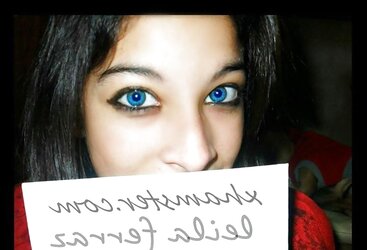 xhamster.com
leila ferraz